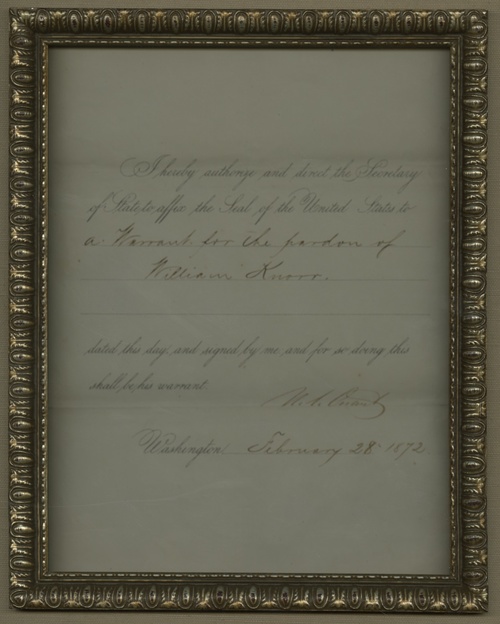 I hereby authorize and direct the Secretary
of State to affix the Seal of the United States to
a Warrant for the pardon of
William Knorr.
dated this day, and signed by me, and for so doing this
shall be his warrant.
U. S. Grant
Washington February 28 1872